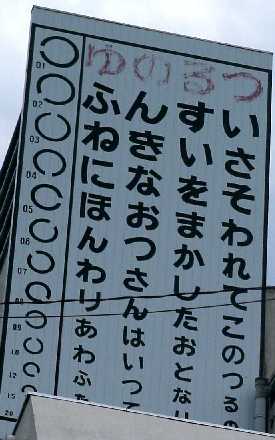 ついさそわれてこのつるの
るすいをまかしたおとなり
のんきなおつさんはいつて
ゆふねにほんわりあわふた
01
02
03
04
05
06
07
08
09
10
12
15
20